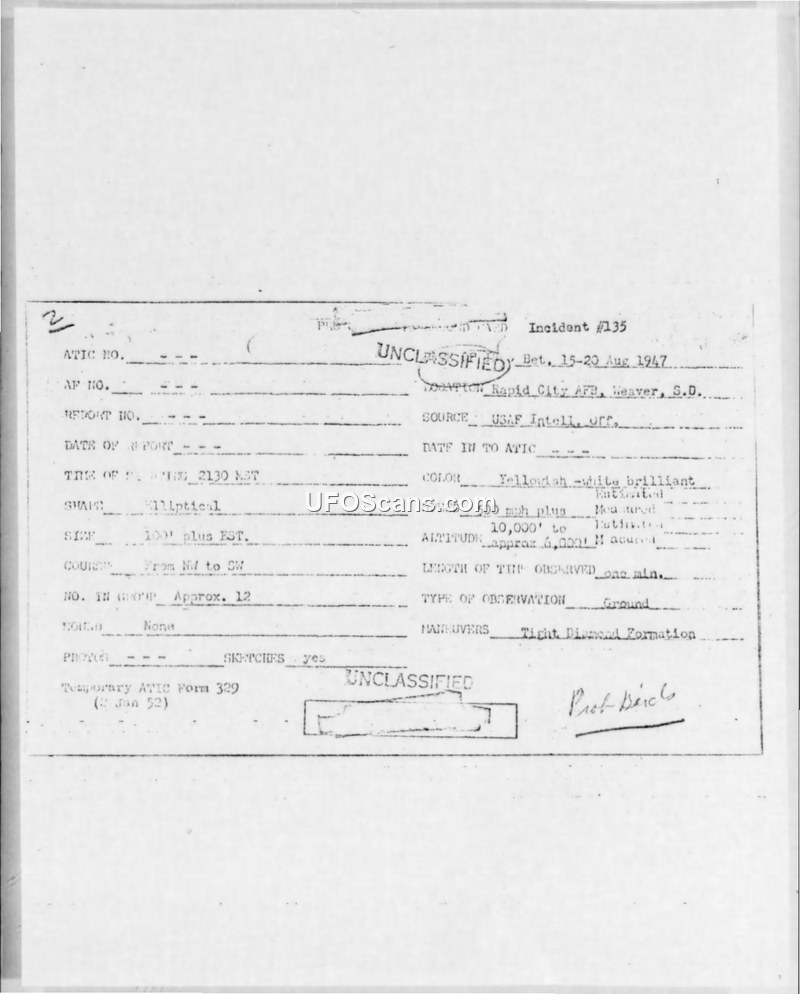 2
Incident #135
ATIC NO. - - -
UNCLASSIFIED Bet. 15-20 Aug 1947
AF NO. - - -
LOCATION Rapid City AFB, Weaver, S.D.
REPORT NO. - - -
SOURCE USAF Intell. Off.
DATE OF REPORT - - -
DATE IN TO ATIC - - -
TIME OF 2130 EST
COLOR Yellowish -white brilliant
SHAPE Elliptical
UFOScans.com
mph plus
Estimated
Measured
SIZE 100' plus EST.
ALTITUDE 10,000' to approx 6,000'
COURSE From NW to SW
LENGTH OF TIME OBSERVED one min.
NO. IN GROUP Approx. 12
TYPE OF OBSERVATION Ground
SOUND None
MANEUVERS Tight Diamond Formation
PHOTOS - - - SKETCHES yes
Temporary ATIC Form 329
(2 Jan 52)
UNCLASSIFIED
Prob Birds